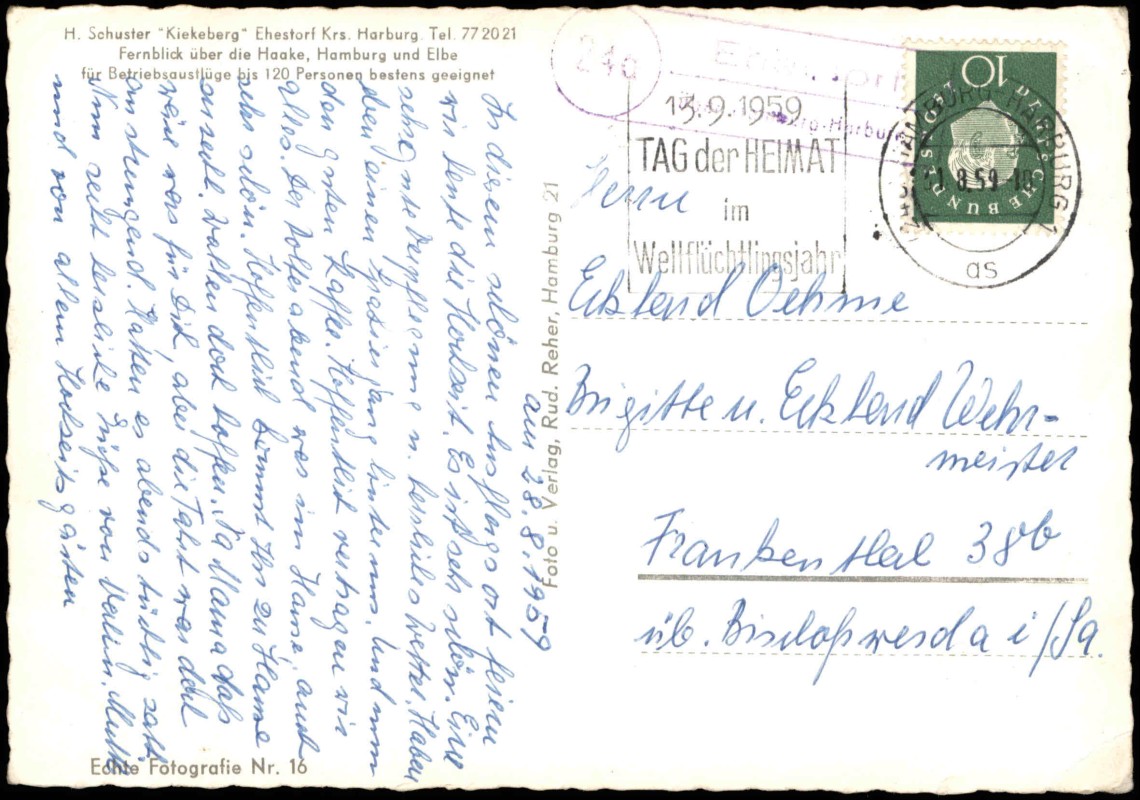 H. Schuster "Kiekeberg" Ehestorf Krs. Harburg. Tel. 77 20 21
Fernblick über die Haake, Hamburg und Elbe
für Betriebsausflüge bis 120 Personen bestens geeignet
am 28.8.1959
In diesem schönen Ausflugsort feiern
wir heute die Hochzeit. Es ist sehr schön. Eine
sehr gute Verpflegung u. herrliches Wetter. Haben
eben einen Spaziergang hinter uns. Und nun
den guten Kaffee. Hoffentlich vertragen wir
alles. Der Polterabend war im Hause, auch
sehr schön. Hoffentlich kommt Ihr zu Hause
zurecht. Wollen doch hoffen. Na Mama das
wäre was für Dich, aber die Fahrt war doch
anstrengend. Hatten es abends tüchtig satt.
Nun recht herzliche Grüße von Mutti
und von allen Hochzeitsgästen
Foto u. Verlag, Rud. Reher, Hamburg 21
Echte Fotografie Nr. 16
24a
Ehestorf
Hamburg-Harburg
13.9.1959
TAG der HEIMAT
im
Weltflüchtlingsjahr
10
DEUTSCHE BUNDESPOST
HAMBURG-HARBURG 1
8.59
as
Herrn
Eckhard Oehme
Brigitte u. Eckhard Wehr-
meister
Frankenthal 38b
üb. Bischofswerda i/Sa.